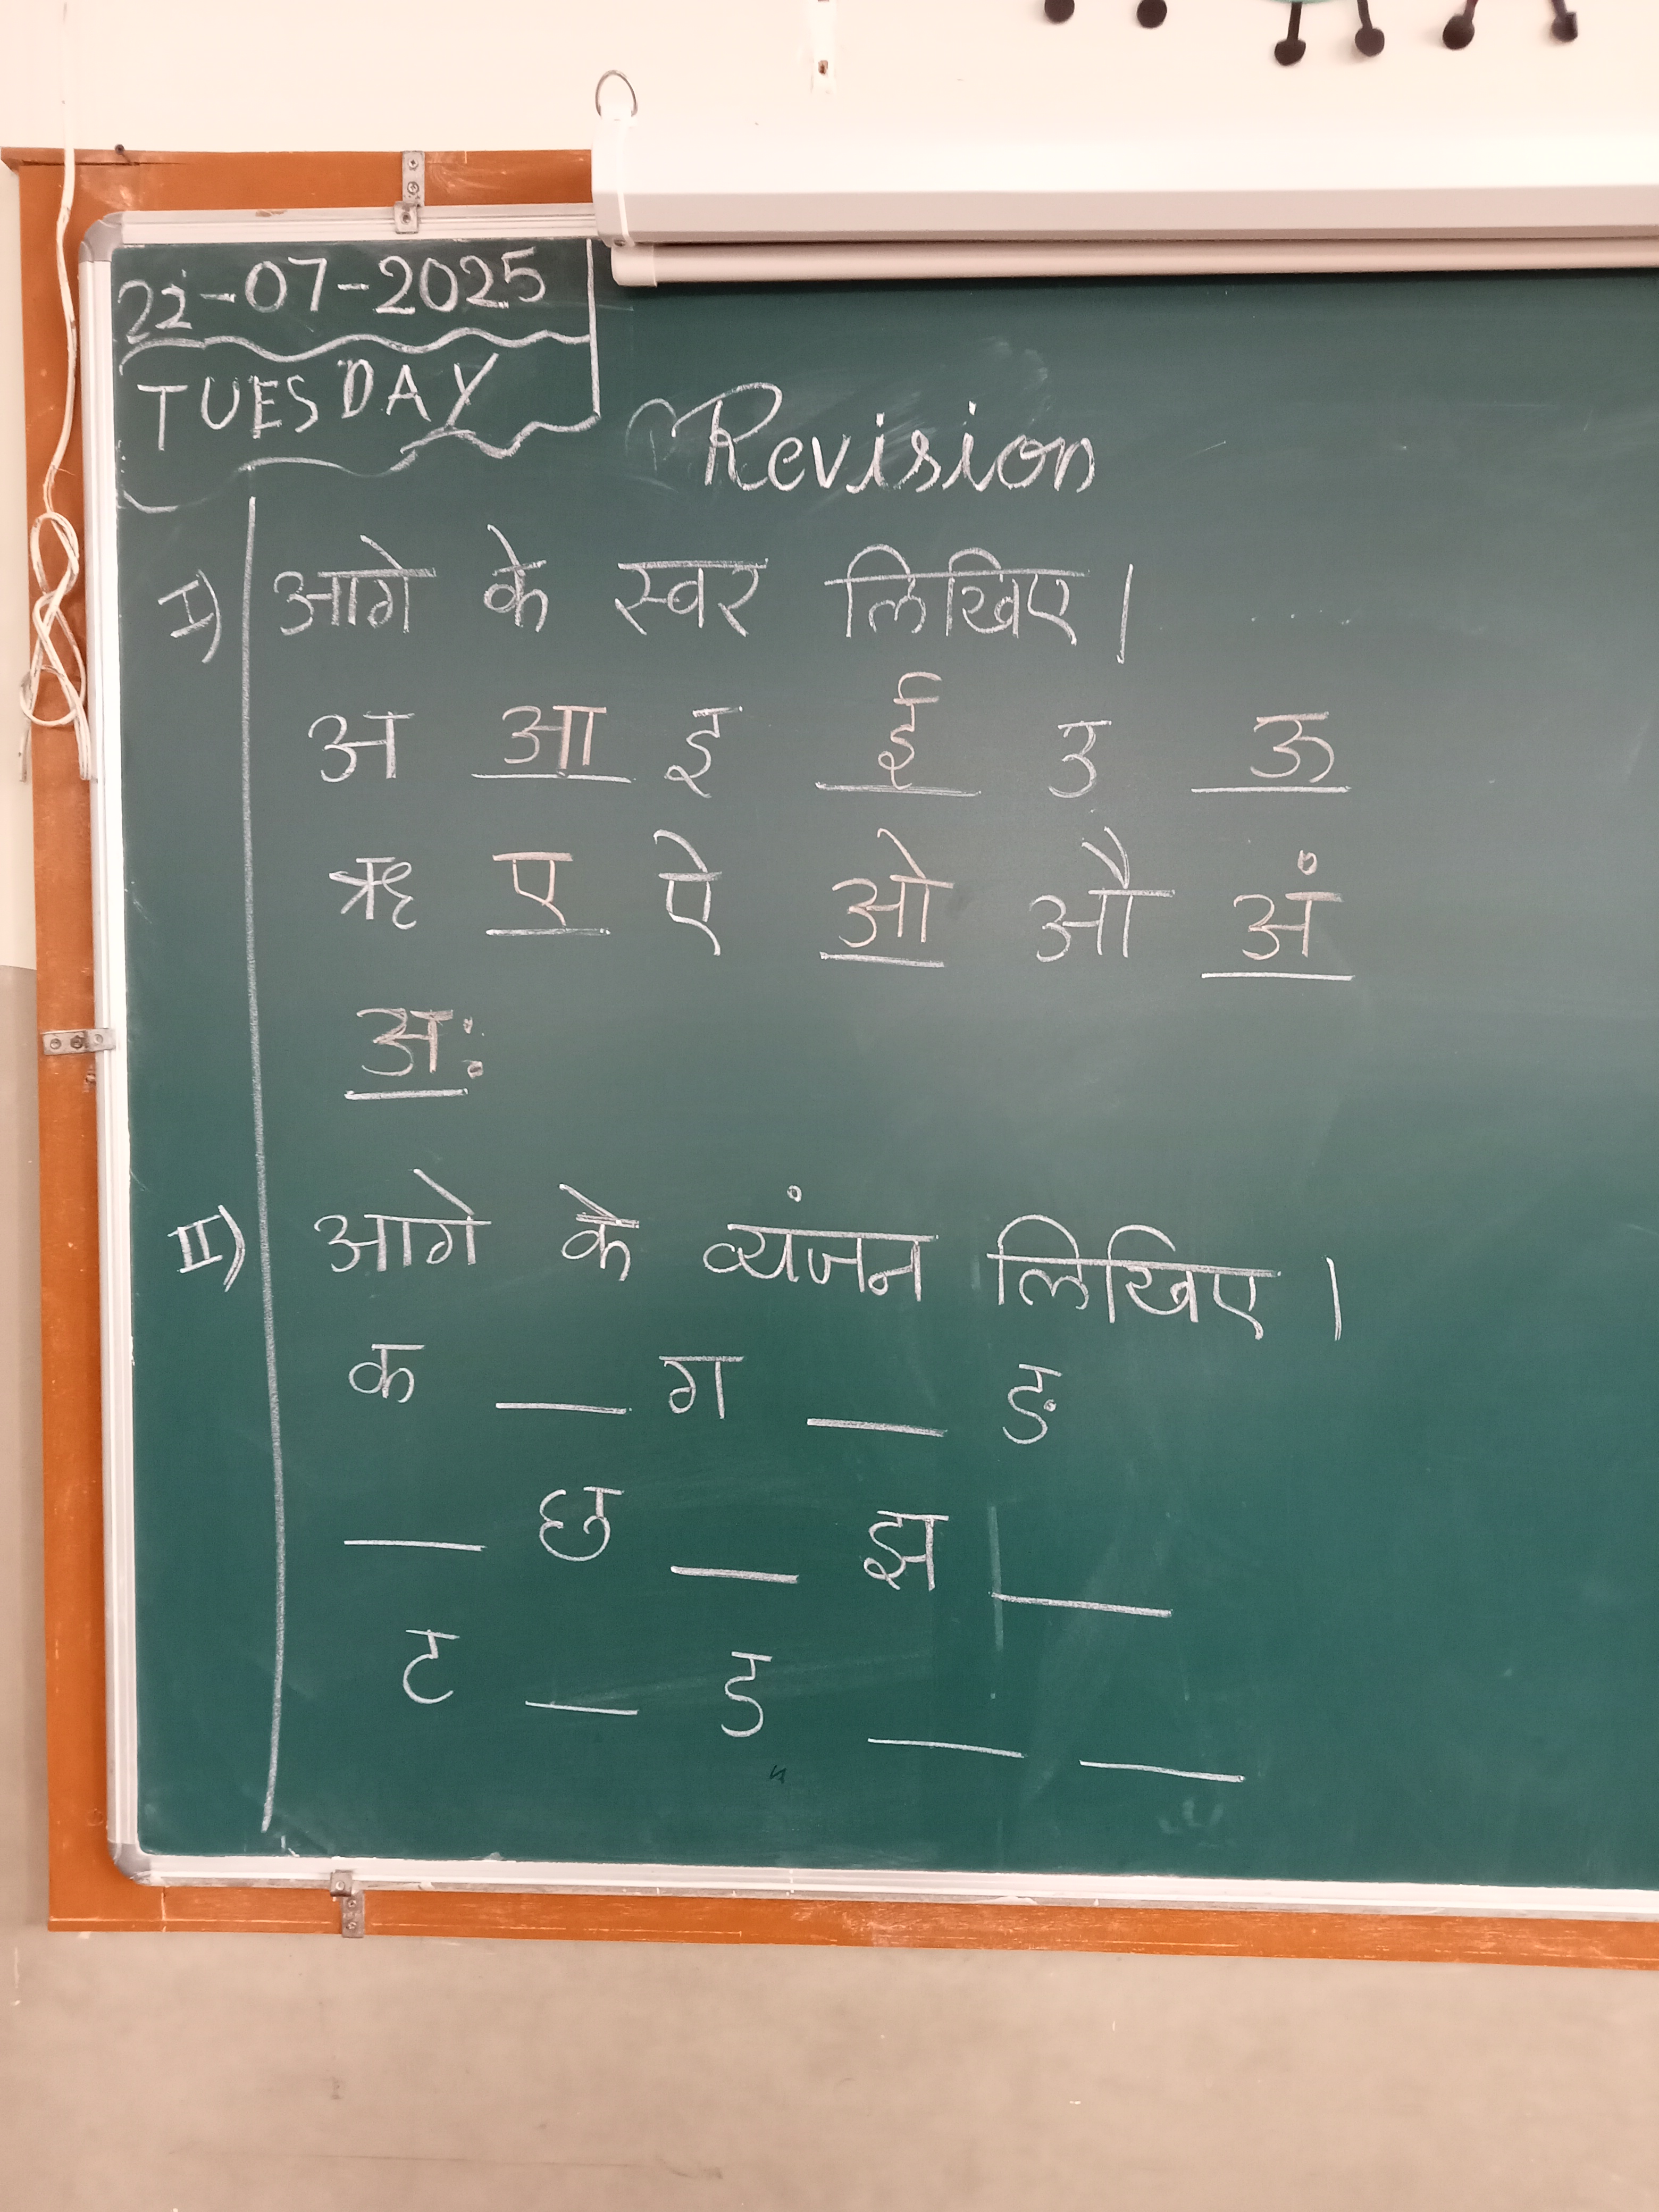 22-07-2025
TUESDAY
Revision
I) आगे के स्वर लिखिए।
अ आ इ ई उ ऊ
ऋ ए ऐ ओ औ अं
अः
II) आगे के व्यंजन लिखिए।
क __ ग __ ङ
__ छ __ झ __
ट __ ड __ __